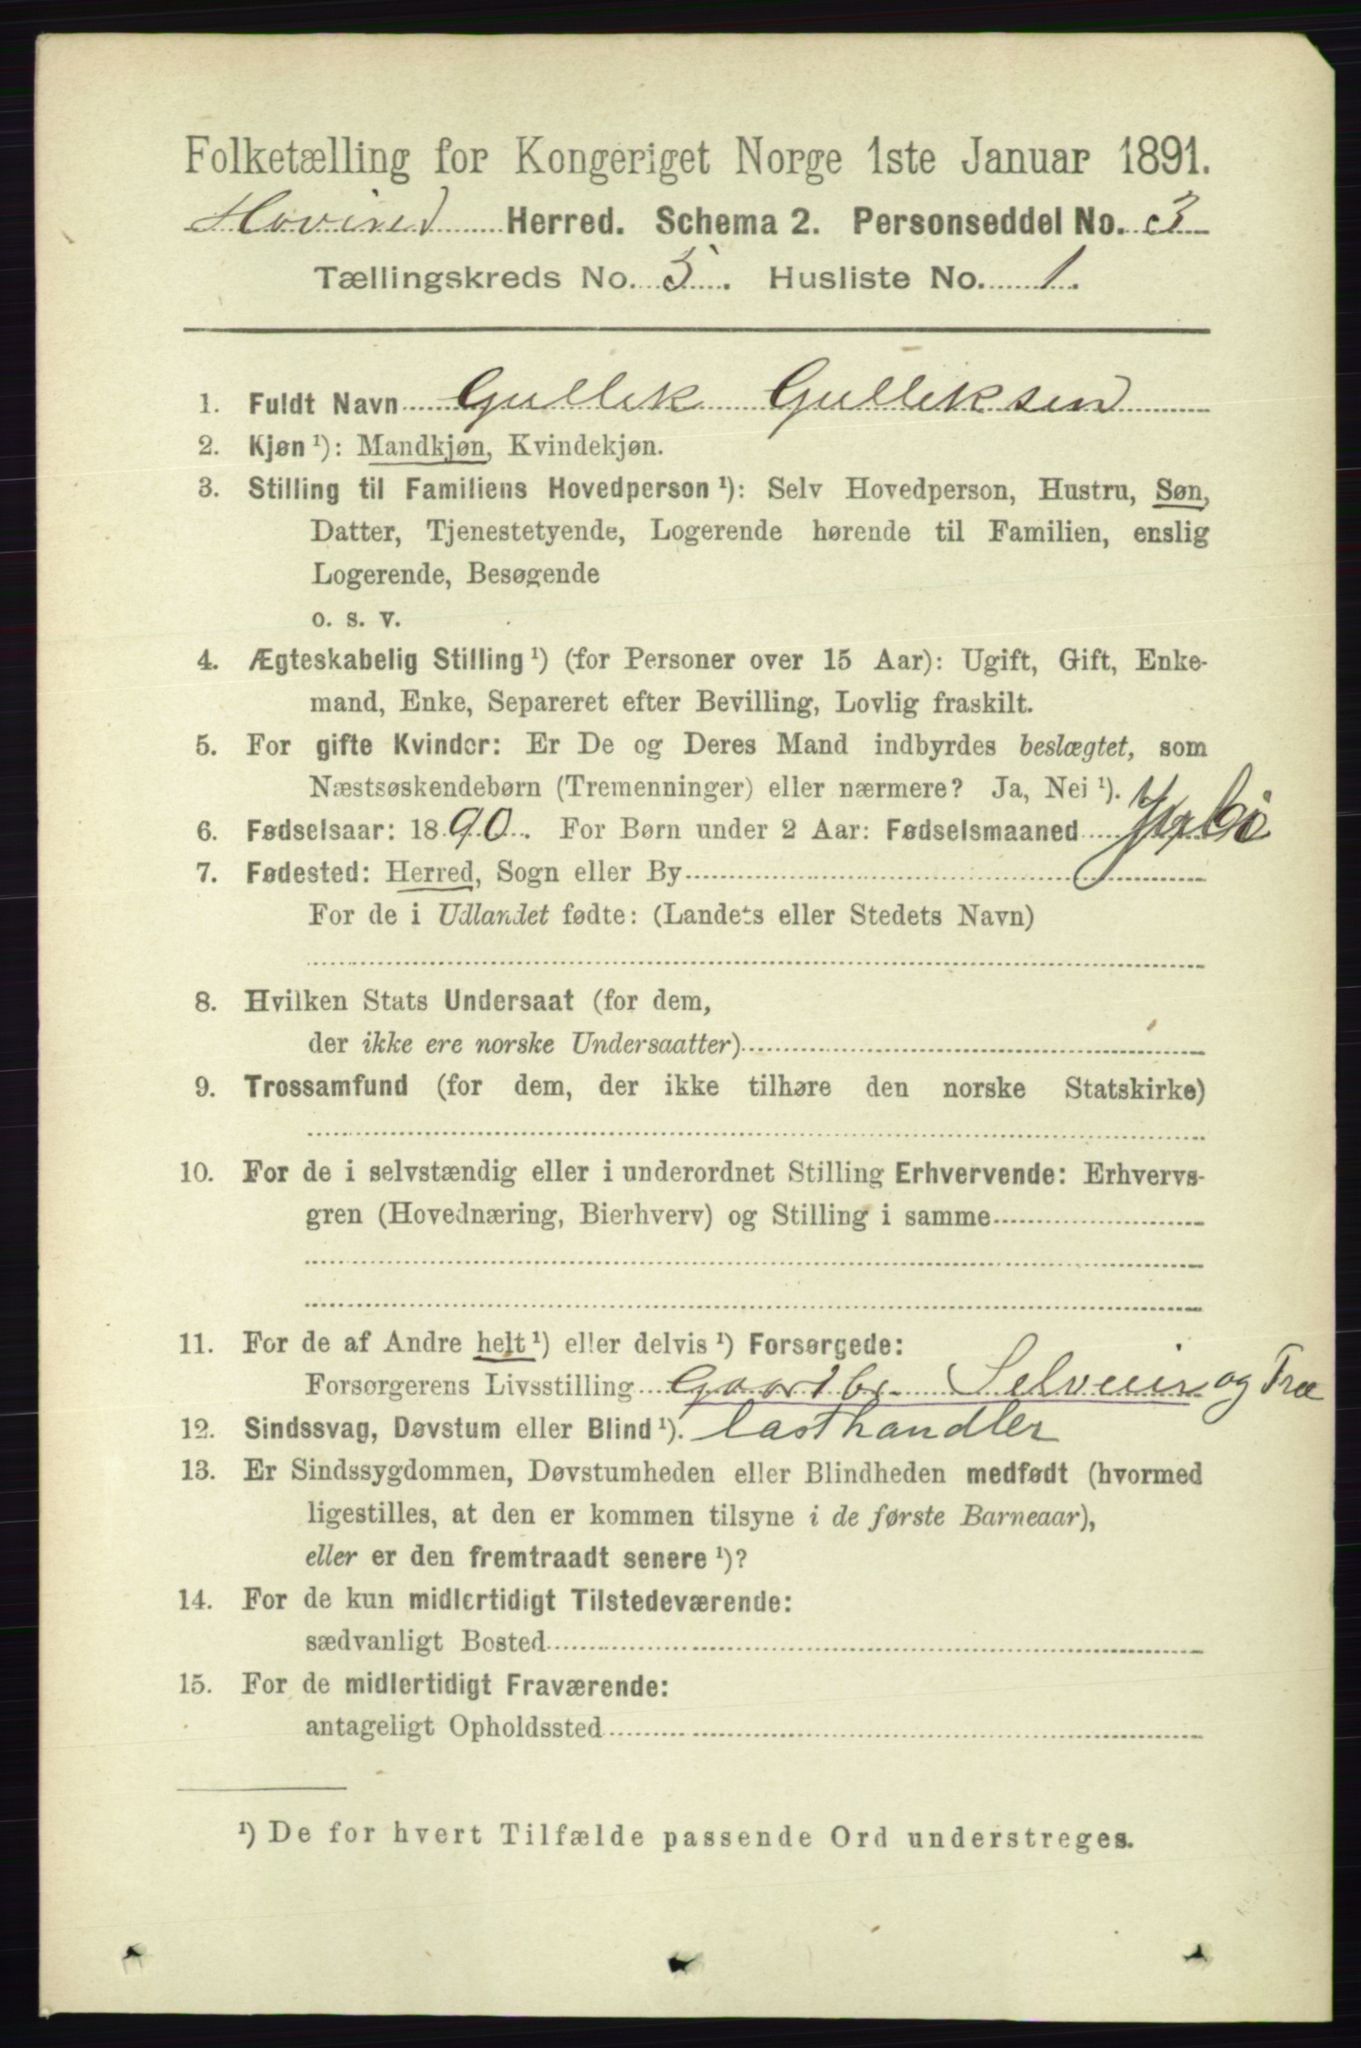 Folketælling for Kongeriget Norge 1ste Januar 1891.
Hovind Herred. Schema 2. Personseddel No. 3
Tællingskreds No. 5. Husliste No. 1.
1. Fuldt Navn Gullek Gulleksen
2. Kjøn ¹): Mandkjøn, Kvindekjøn.
3. Stilling til Familiens Hovedperson ¹): Selv Hovedperson, Hustru, Søn,
Datter, Tjenestetyende, Logerende hørende til Familien, enslig
Logerende, Besøgende
o. s. v.
4. Ægteskabelig Stilling ¹) (for Personer over 15 Aar): Ugift, Gift, Enke-
mand, Enke, Separeret efter Bevilling, Lovlig fraskilt.
5. For gifte Kvinder: Er De og Deres Mand indbyrdes beslægtet, som
Næstsøskendebørn (Tremenninger) eller nærmere? Ja, Nei ¹).
6. Fødselsaar: 1890. For Børn under 2 Aar: Fødselsmaaned
7. Fødested: Herred, Sogn eller By
For de i Udlandet fødte: (Landets eller Stedets Navn)
8. Hvilken Stats Undersaat (for dem,
der ikke ere norske Undersaatter)
9. Trossamfund (for dem, der ikke tilhøre den norske Statskirke)
10. For de i selvstændig eller i underordnet Stilling Erhvervende: Erhvervs-
gren (Hovednæring, Bierhverv) og Stilling i samme
11. For de af Andre helt ¹) eller delvis ¹) Forsørgede:
Forsørgerens Livsstilling Gaardbr Selveier og Træ
12. Sindssvag, Døvstum eller Blind ¹). lasthandler
13. Er Sindssygdommen, Døvstumheden eller Blindheden medfødt (hvormed
ligestilles, at den er kommen tilsyne i de første Barneaar),
eller er den fremtraadt senere ¹)?
14. For de kun midlertidigt Tilstedeværende:
sædvanligt Bosted
15. For de midlertidigt Fraværende:
antageligt Opholdssted
¹) De for hvert Tilfælde passende Ord understreges.